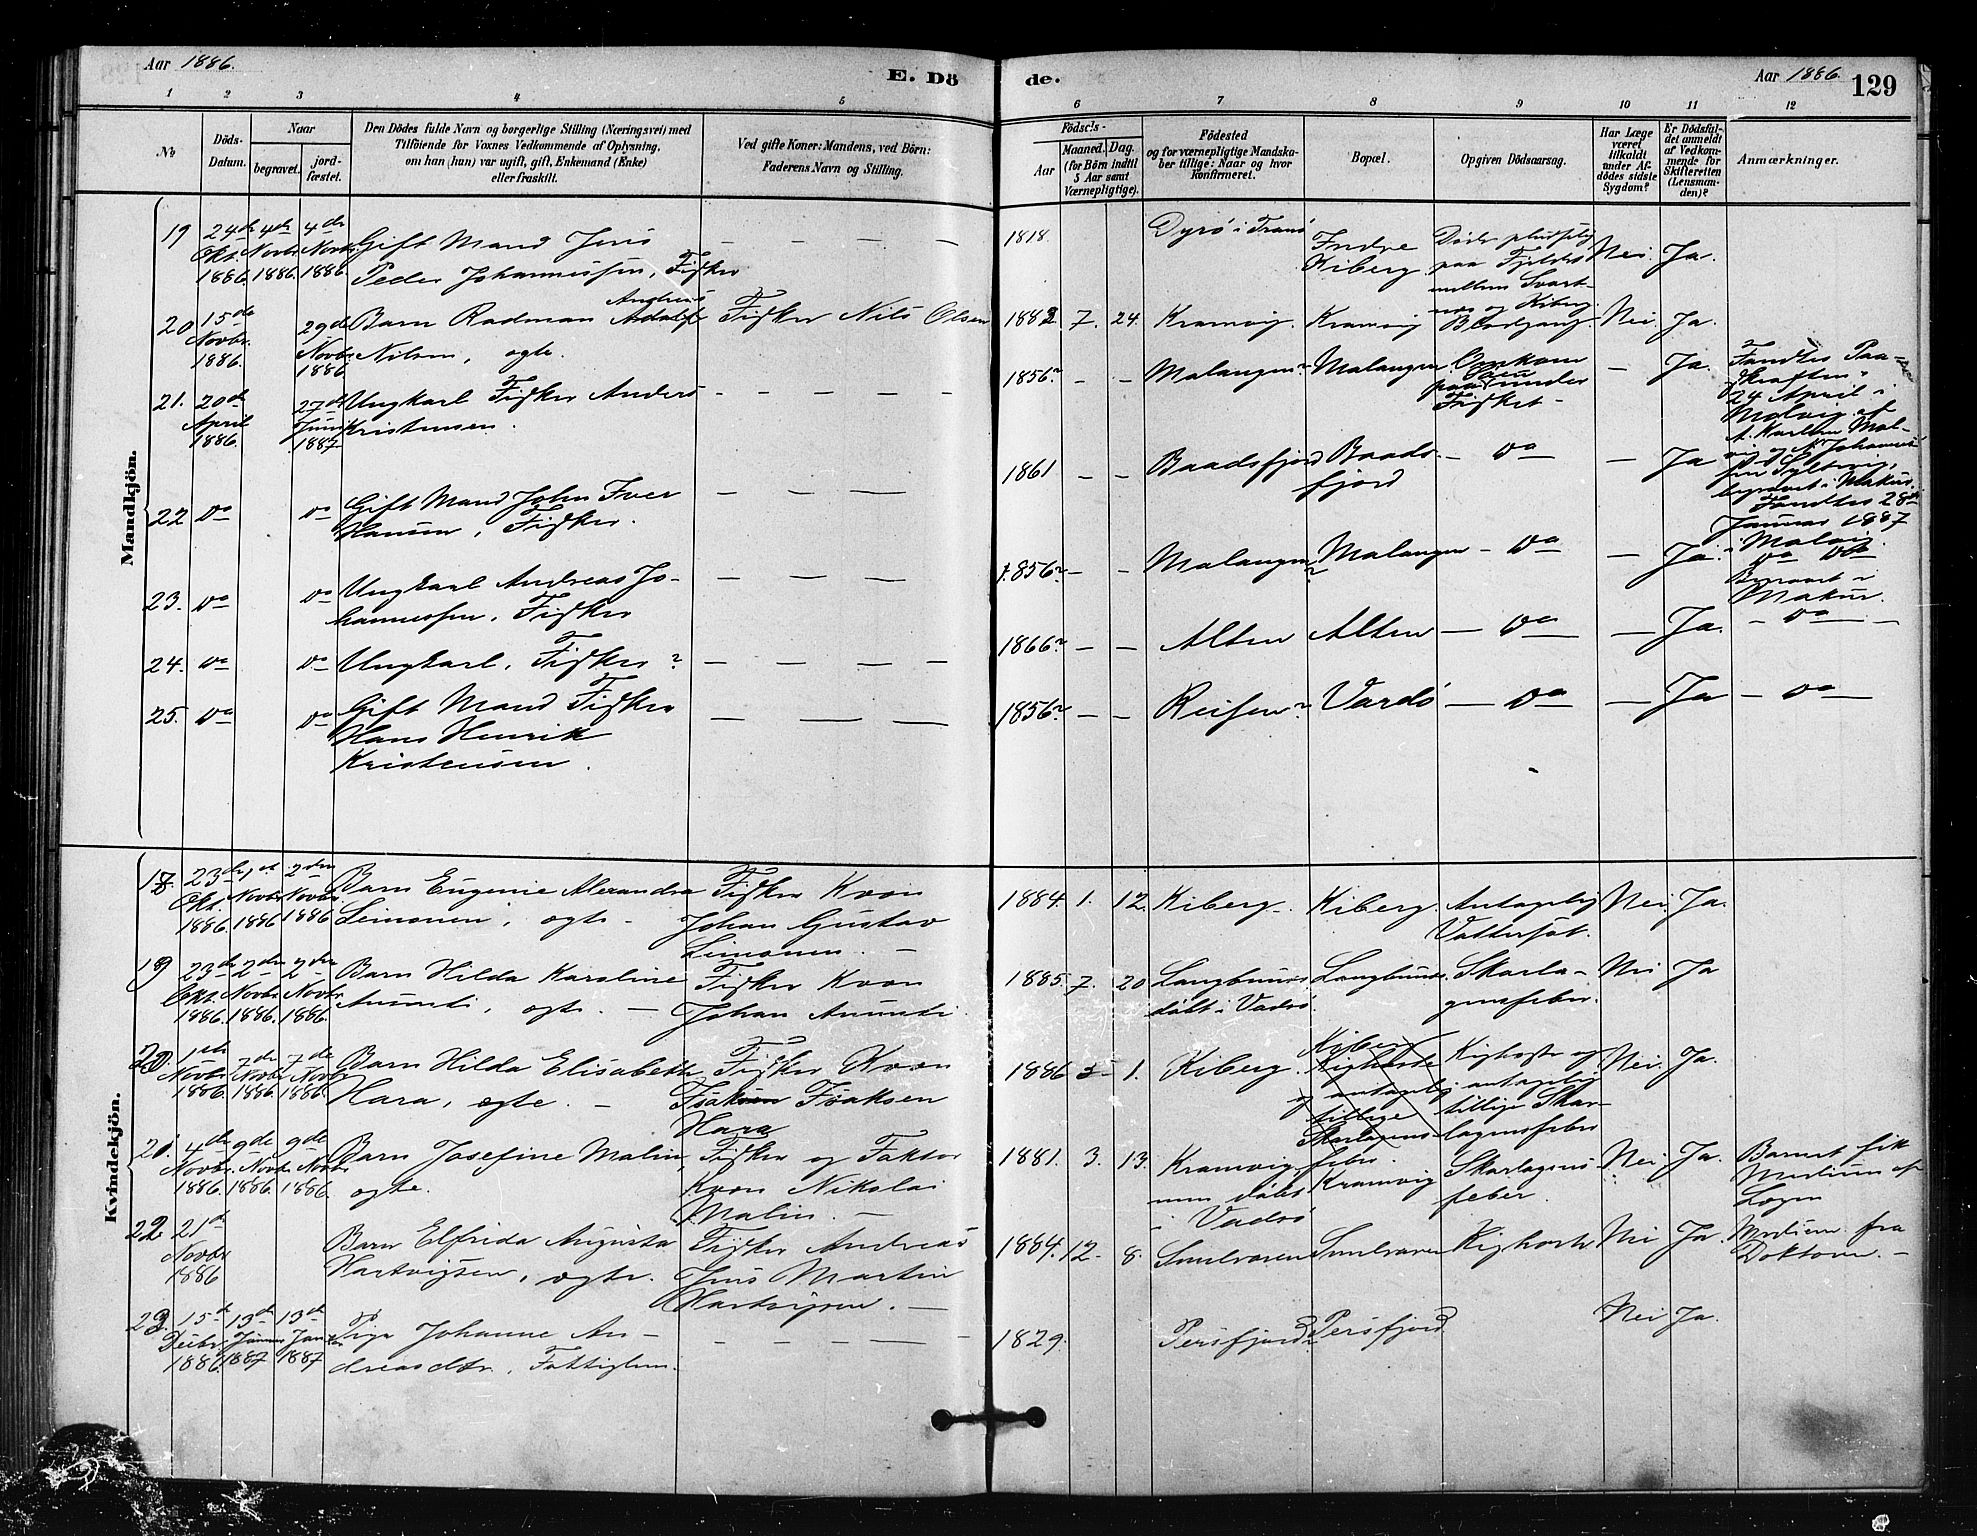 Aar 1886.
E. Dö
de.
Aar 1886.
129
1 2 3 4 5 6 7 8 9 10 11 12
No
Döds-Datum.
Naar
begravet.
jord-fæstet.
Den Dödes fulde Navn og borgerlige Stilling (Næringsvei) med
Tilföiende for Voxnes Vedkommende af Oplysning,
om han (hun) var ugift, gift, Enkemand (Enke)
eller fraskilt.
Ved gifte Koner: Mandens, ved Börn:
Faderens Navn og Stilling.
Födsels-
Aar
Maaned. Dag.
(for Börn indtil
5 Aar samt
Værnepligtige).
Födested
og for værnepligtige Mandska-
ber tillige: Naar og hvor
Konfirmeret.
Bopæl.
Opgiven Dödsaarsag.
Har Læge
været
tilkaldt
under Af-
dödes sidste
Sygdom?
Er Dödsfal-
det anmeldt
af Vedkom-
mende for
Skifteretten
(Lensman-
den)?
Anmærkninger.
Mandkjön.
19 24de Okt. 1886 4de Novbr. 1886. 4de Novbr. 1886
Gift Mand Jens
Peder Johannessen, Fisker
1818. Dyrö i Tranö
Indre
Kiberg
Döde pludselig
paa Fjeldet
mellem Svart-
næs og Kiberg.
Nei. Ja.
20 15de Novbr. 1886. 29de Novbr. 1886
Barn Radman Andreas Adolf
Nilsen, ægte.
Fisker Nils Olsen
1882 7. 24. Kramvig. Kramvig Blodgang. Nei Ja.
21. 20de April 1886. 27de Juni 1887
Ungkarl Fisker Anders
Kristensen.
1856? Malangen? Malangen Omkom
paa Søen under
Fisket
Ja.
Fandtes Paa-
24 April i
Molvig af
A. Karlsen Mol-
vig og Johannes-
sen Syltevig,
begravet i Makur.
22 do do
Gift Mand John Iver
Hansen, Fisker.
1861 Baadsfjord Baads-
fjord do Ja
Fandtes 28de
Januar 1887
i Molvig.
23. do do
Ungkarl Andreas Jo-
hannessen, Fisker
1856? Malangen? Malangen do Ja.
do do
Begravet i
Makur.
24. do do
Ungkarl, Fisker?
1866? Alten Alten do Ja. do
25. do do
Gift Mand Fisker
Hans Henrik
Kristensen.
1856? Reisen? Vardö do Ja do
Kvindekjön.
18. 23de Okt. 1886. 1st Novbr. 1886 2den Novbr. 1886
Barn Eugenie Alexandra
Limonen, ægte
Fisker Kvæn
Johan Gustav
Limonen.
1884. 1. 12. Kiberg. Kiberg. Antagelig
Vattersot.
Nei. Ja.
19 23de Okt. 1886. 2den Novbr. 1886. 2den Novbr. 1886.
Barn Hilda Karoline
Anundi, ægte.
Fisker Kvæn
Johan Anundi.
1885. 7. 20 Langbunes
döbt i Vadsö. Langbunes. Skarla-
gensfeber.
Nei Ja
20. 1ste Novbr. 1886. 7de Novbr. 1886. 7de Novbr. 1886.
Barn Hilda Elisabeth
Hara, ægte.
Fisker Kvæn
Isaksen Isaksen
Hara
1886 3 1. Kiberg. Kiberg
Kighoste
og antagelig
tillige
Skarlagens-
feber.
Kighoste og
antagelig
tillige Skar-
lagensfeber
Nei. Ja.
21 4de Novbr. 1886. 9de Novbr. 1886. 9de Novbr. 1886.
Barn Josefine Malin,
ægte.
Fisker og Faktor
Kvæn Nikolai
Malin.
1881. 3. 13. Kramvig,
men döbt
i Vadsö
Kramvig Skarlagens
feber.
Nei Ja.
Barnet fik
Medicin af
Lægen
22. 21de Novbr. 1886
Barn Elfrida Augusta
Hartvigsen, ægte.
Fisker Andreas
Jens Martin
Hartvigsen.
1884. 12. 8. Smelroren Smelroren Kighoste Nei Ja. Medicin fra
Doktoren.
23. 15de Decbr. 1886. 13de Januar 1887 13de Jan 1887
Pige Johanne An-
dreasdtr, Fattiglem.
1829. Persfjord Persfjord
Nei Ja.